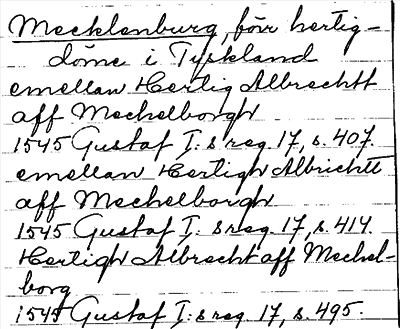 Mecklenburg, förr hertig-
döme i Tyskland
emellan Hertig Albrechtt
aff Mechelborgh
1545 Gustaf I:s reg. 17, s. 407.
emellan Hertigh Albrichtt
aff Mechelborgh
1545 Gustaf I:s reg. 17, s. 414.
Hertigh Albrecht aff Mechel-
borg
1545 Gustaf I:s reg. 17, s. 495.